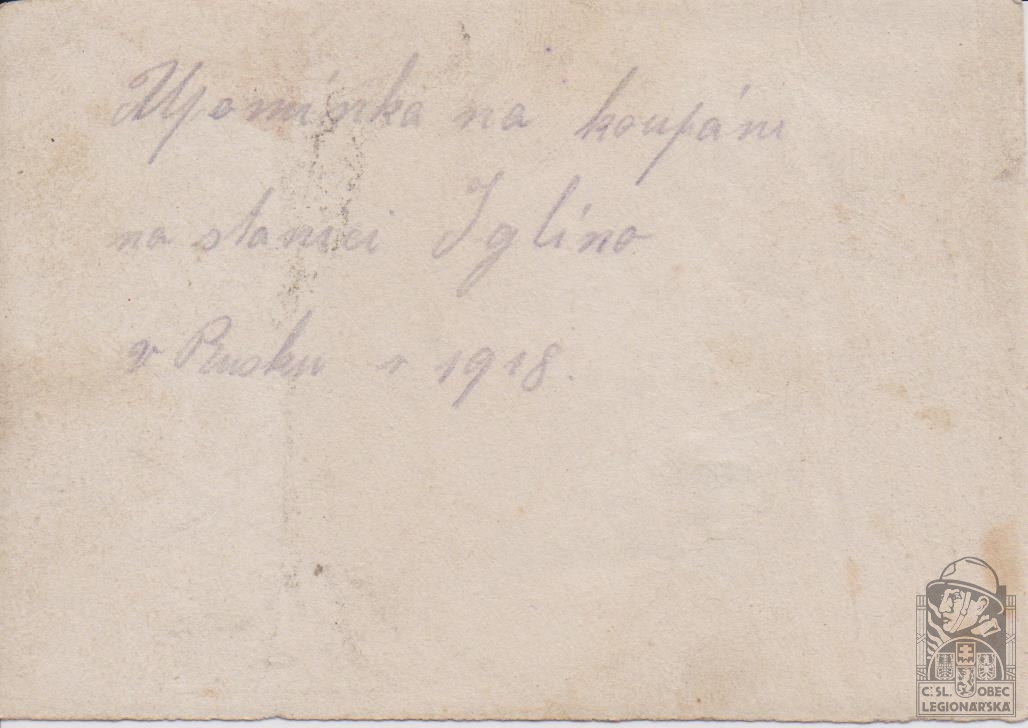 Upomínka na koupáni
na stanici Iglíno
v Rusku r 1918.
Č:SL. OBEC
LEGIONÁŘSKÁ